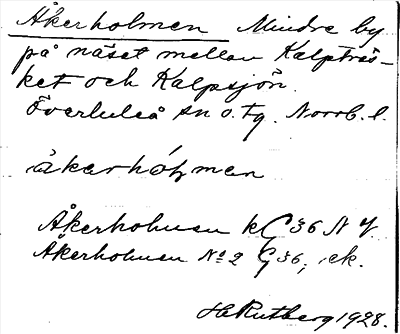 Åkerholmen Mindre by
på näset mellan Kalpträs-
ket och Kalpsjön.
Överluleå sn o. tg. Norrb. l.
åkerhólmen
Åkerholmen kG 36 N
Åkerholmen No 2 G 36; ek.
H Rutberg 1928.